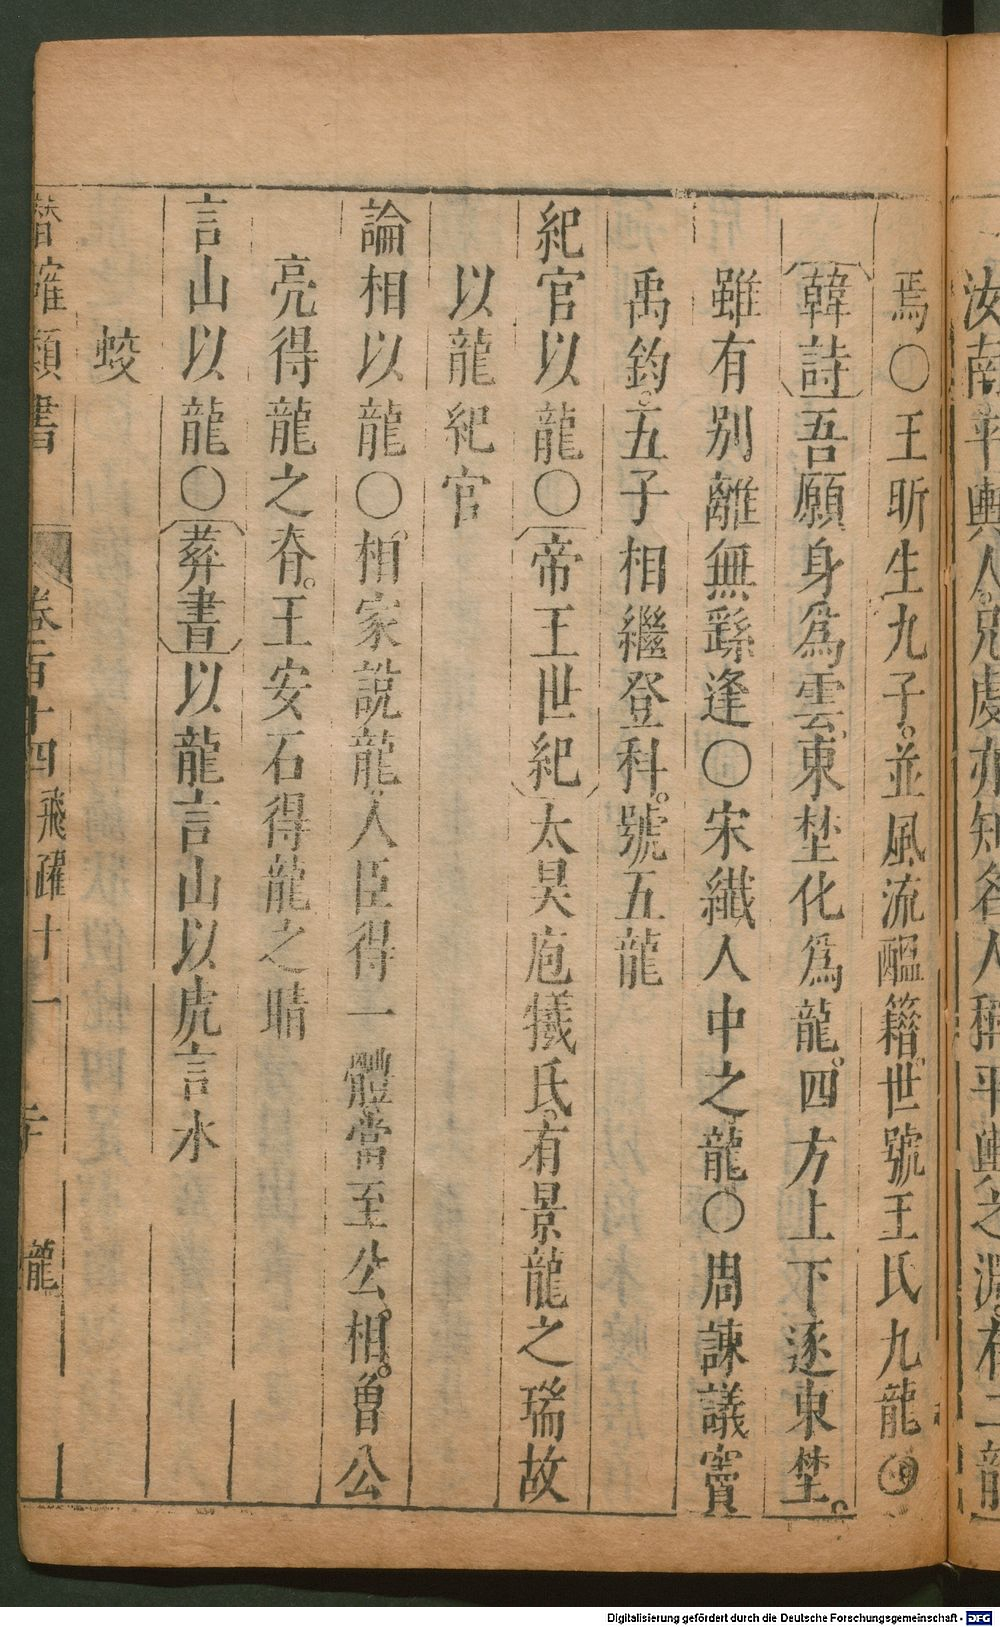 汝南平輿人。兄虔亦知名人稱平輿之淵。有二龍
焉〇王昕生九子。並風流醞籍。世號王氏九龍〇
韓詩吾願身爲雲東埜化爲龍。四方上下逐東埜。
雖有別離無繇逢〇宋纖人中之龍〇周諫議竇
禹鈞。五子相繼登科。號五龍
紀官以龍〇帝王世紀太昊庖犧氏。有景龍之瑞故
以龍紀官
論相以龍〇相家說龍人臣得一體當至公相。曾公
亮得龍之脊。王安石得龍之睛
言山以龍〇葬書以龍言山以虎言水
蛟
潛確類書 卷百十四 飛躍十一 龍
Digitalisierung gefördert durch die Deutsche Forschungsgemeinschaft - DFG